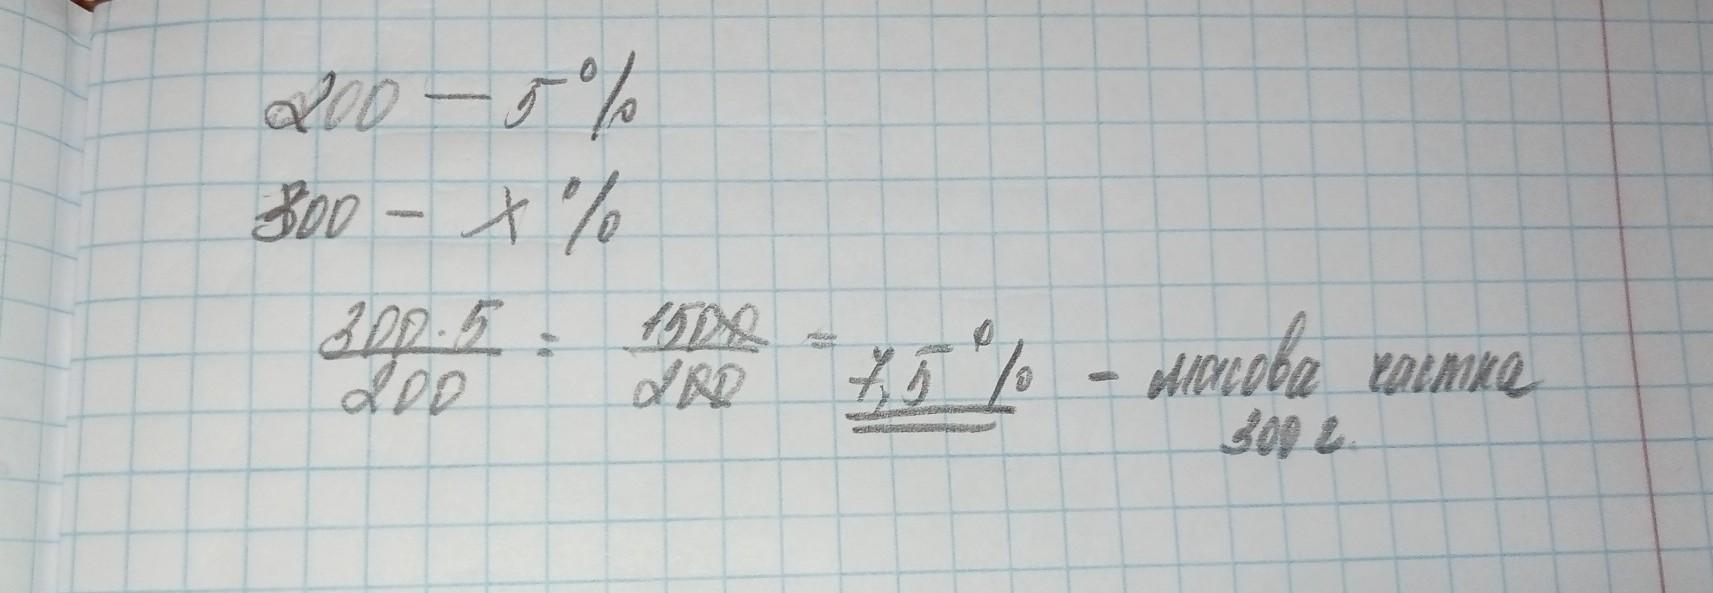 200 — 5%
300 - x %
300·5/200 = 1500/200 = 7,5% - масова частка
300 г.